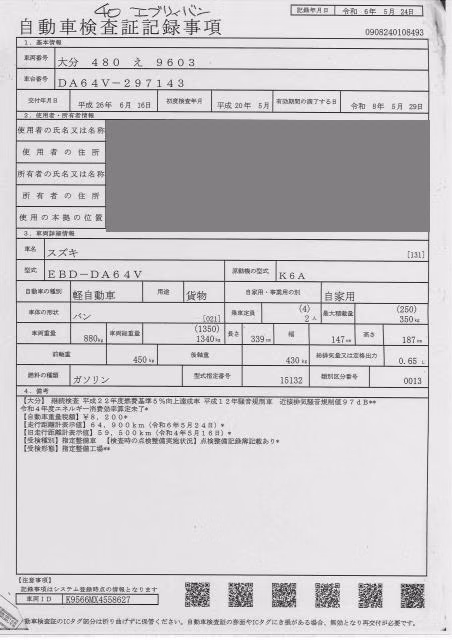 40 エブリィバン
自動車検査証記録事項
記録年月日 令和 6年 5月 24日
0908240108493
1. 基本情報
車両番号 大分 480 え 9603
車台番号 DA64V-297143
交付年月日 平成 26年 6月 16日 初度検査年月 平成 20年 5月 有効期間の満了する日 令和 8年 5月 29日
2. 使用者・所有者情報
使用者の氏名又は名称
使用者の住所
所有者の氏名又は名称
所有者の住所
使用の本拠の位置
3. 車両詳細情報
車名 スズキ [131]
型式 EBD-DA64V 原動機の型式 K6A
自動車の種別 軽自動車 用途 貨物 自家用・事業用の別 自家用
車体の形状 バン [021] 乗車定員 (4) 2人 最大積載量 (250) 350kg
車両重量 880kg 車両総重量 (1350) 1340kg 長さ 339cm 幅 147cm 高さ 187cm
前軸重 450kg 後軸重 430kg 総排気量又は定格出力 0.65L
燃料の種類 ガソリン 型式指定番号 15132 類別区分番号 0013
4. 備考
【大分】 継続検査 平成22年度燃費基準5%向上達成車 平成12年騒音規制車 近接排気騒音規制値97dB**
令和4年度エネルギー消費効率算定未了*
【自動車重量税額】¥8,200*
【走行距離計表示値】64,900km(令和6年5月24日)*
【旧走行距離計表示値】59,500km(令和4年5月16日)*
【受検種別】指定整備車 【検査時の点検整備実施状況】点検整備記録簿記載あり*
【受検形態】指定整備工場**
【注意事項】
記録事項はシステム登録時点の情報となります
車両ID K9566MX4558627
動車検査証のICタグ部分は折り曲げずに保管ください。自動車検査証の券面やICタグにき損がある場合、無効となり再交付が必要です。